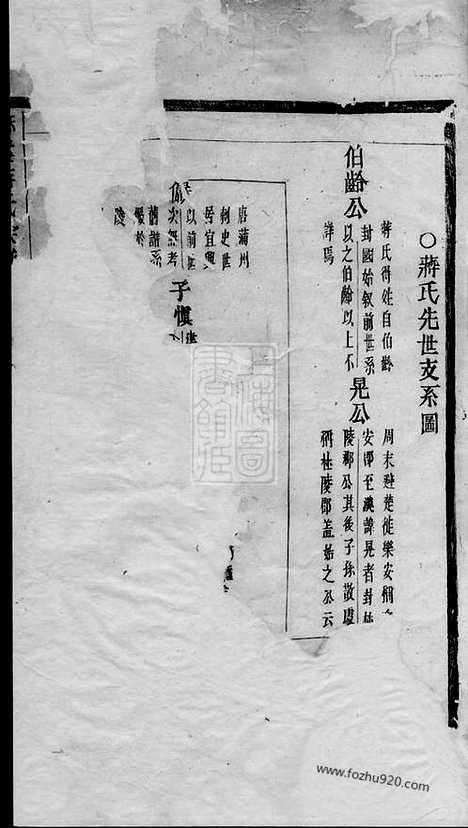 〇蔣氏先世支系圖
伯齡公
蔣氏得姓自伯齡
封國始敘前世系
以之伯齡以上不
詳焉
晃公
周末避楚徙樂安
安郡至漢諱晃者封
陵鄉公其後子孫散處
稱杜陵郡蓋始之公云
唐蒲州
刺史世
居宜興
以前世
次無考
舊譜系
陵
子慎
上海圖書館藏
www.fozhu920.com